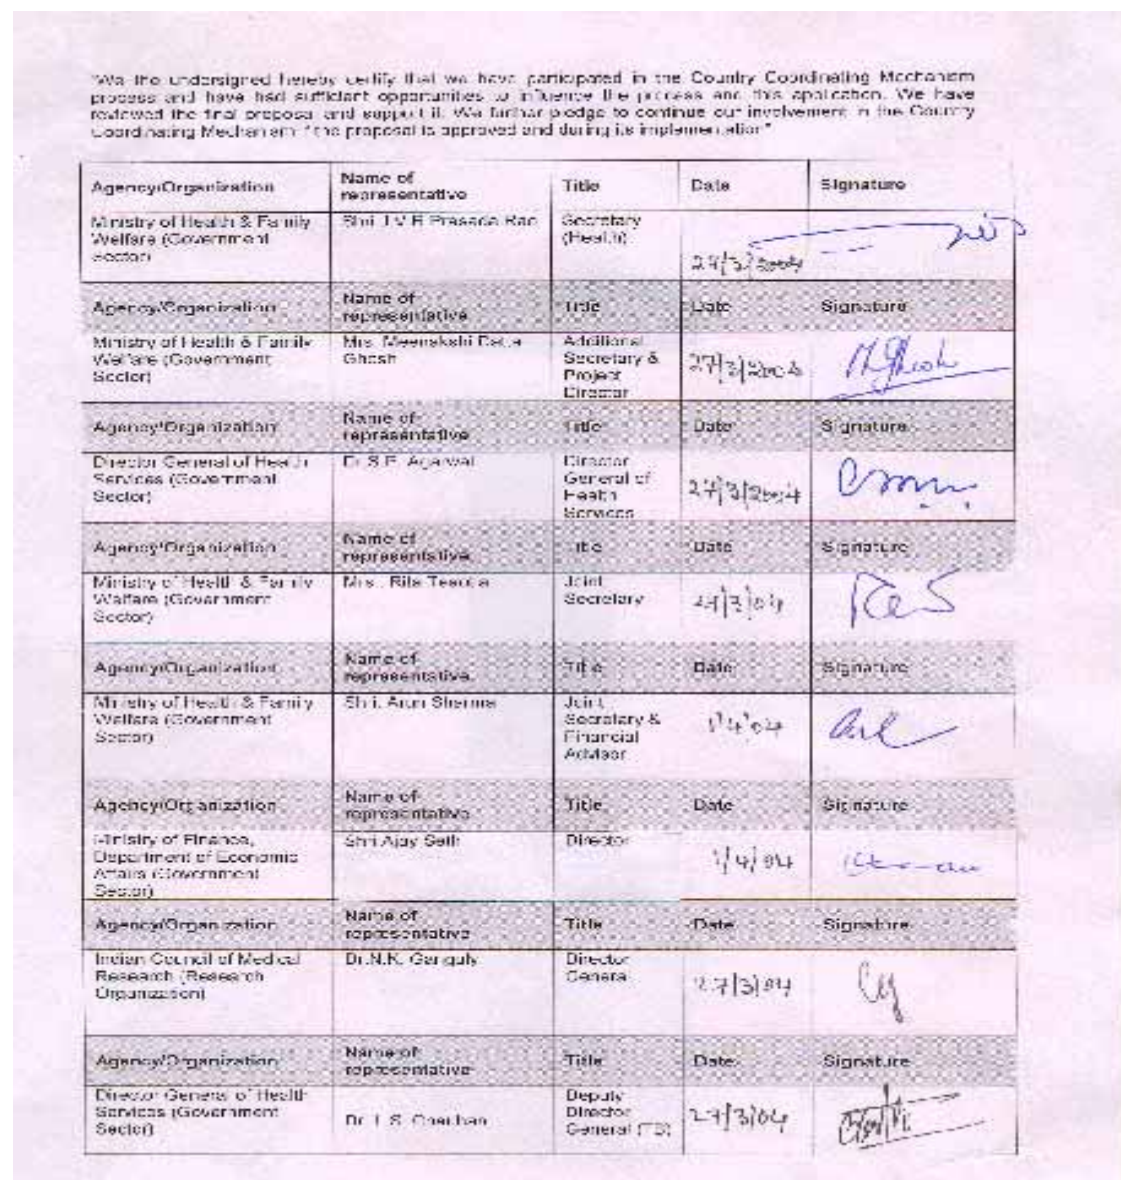 "We the undersigned hereby certify that we have participated in the Country Coordinating Mechanism
process and have had sufficient opportunities to influence the process and this application. We have
reviewed the final proposal and support it. We further pledge to continue our involvement in the Country
Coordinating Mechanism if the proposal is approved and during its implementation"
Agency/Organization Name of representative Title Date Signature
Ministry of Health & Family Welfare (Government Sector) Shri J.V.R Prasada Rao Secretary (Health) 27/3/2004
Agency/Organization Name of representative Title Date Signature
Ministry of Health & Family Welfare (Government Sector) Mrs. Meenakshi Datta Ghosh Additional Secretary & Project Director 27/3/2004 MGhosh
Agency/Organization Name of representative Title Date Signature
Director General of Health Services (Government Sector) Dr. S.P. Agarwal Director General of Health Services 27/3/2004
Agency/Organization Name of representative Title Date Signature
Ministry of Health & Family Welfare (Government Sector) Mrs. Rita Teaotia Joint Secretary 27/3/04
Agency/Organization Name of representative Title Date Signature
Ministry of Health & Family Welfare (Government Sector) Shri. Arun Sharma Joint Secretary & Financial Advisor 1/4/04
Agency/Organization Name of representative Title Date Signature
Ministry of Finance, Department of Economic Affairs (Government Sector) Shri Ajay Seth Director 1/4/04
Agency/Organization Name of representative Title Date Signature
Indian Council of Medical Research (Research Organization) Dr.N.K. Ganguly Director General 27/3/04
Agency/Organization Name of representative Title Date Signature
Director General of Health Services (Government Sector) Dr. L.S. Chauhan Deputy Director General (TB) 27/3/04